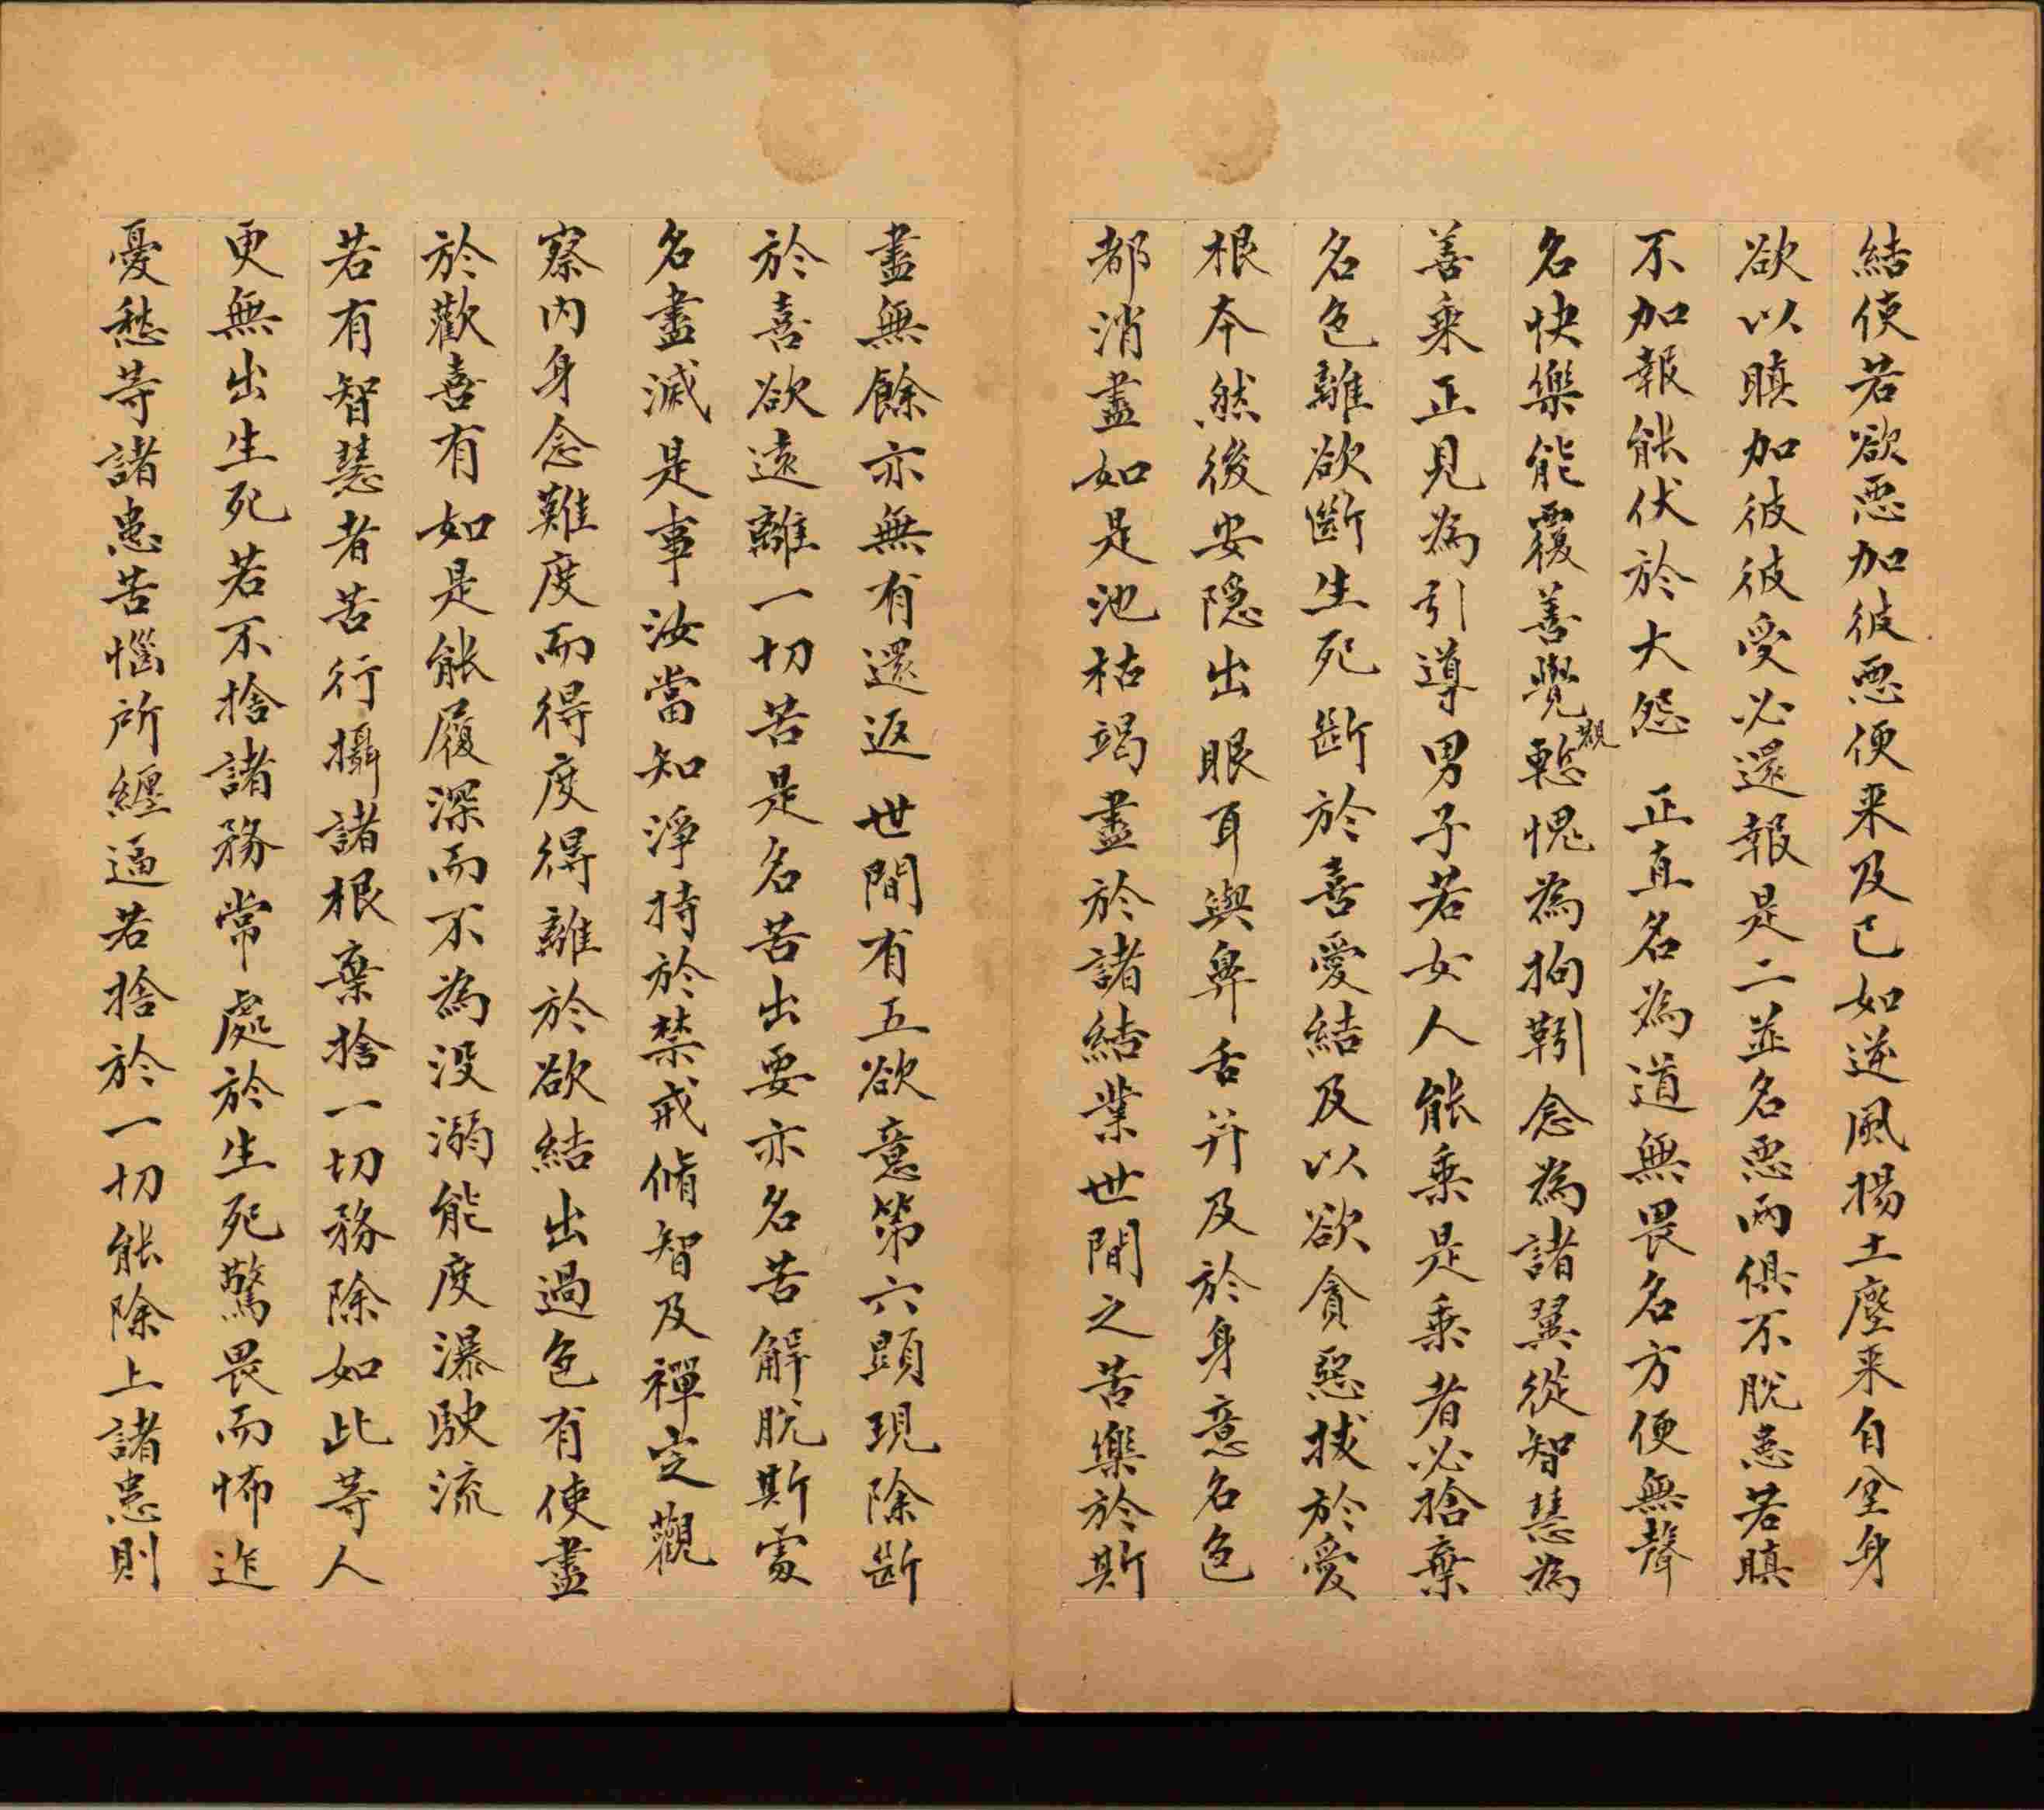 結使若欲惡加彼惡便来及已如逆風揚土塵来自坌身
欲以瞋加彼彼受必還報是二並名惡兩俱不脫患若瞋
不加報能伏於大怨 正直名為道無畏名方便無聲
名快樂能覆善覺觀慙愧為拘靷念為諸翼從智慧為
善乘正見為引導男子若女人能乘是乘者必捨棄
名色離欲斷生死斷於喜愛結及以欲貪惡拔於愛
根本然後安隱出眼耳與鼻舌并及於身意名色
都消盡如是池枯竭盡於諸結業世間之苦樂於斯
盡無餘亦無有還返 世間有五欲意第六顯現除斷
於喜欲遠離一切苦是名苦出要亦名苦解脫斯處
名盡滅是事汝當知淨持於禁戒脩智及禪定觀
察內身念難度而得度得離於欲結出過色有使盡
於歡喜有如是能履深而不為没溺能度瀑駛流
若有智慧者苦行攝諸根棄捨一切務除如此等人
更無出生死若不捨諸務常處於生死驚畏而怖迮
憂愁等諸患苦惱所纏逼若捨於一切能除上諸患則